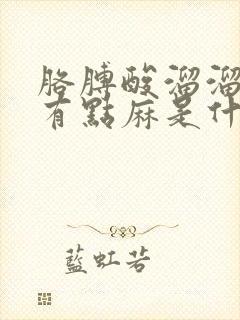 胳膊酸溜溜
有點麻是什
藍虹若